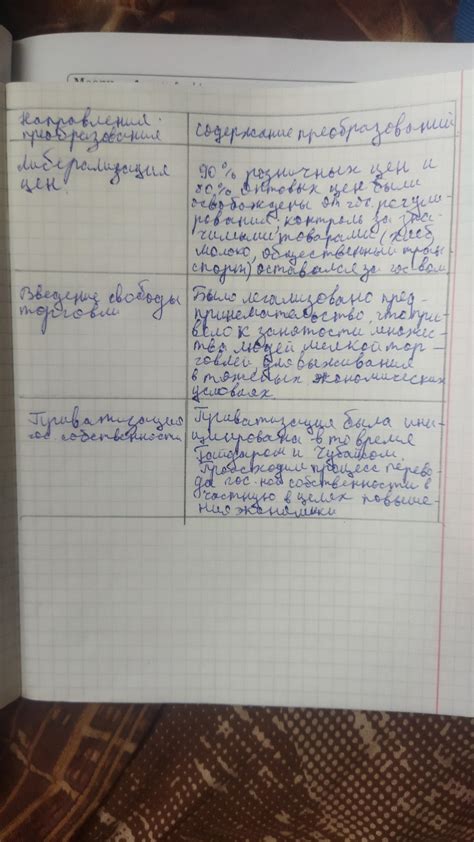 Направления преобразования
Содержание преобразований
Либерализация
цен.
90% розничных цен и
80% оптовых цен были
освобождены от гос. регули-
рования контроль за зна-
чимыми товарами (хлеб
молоко, общественный тран-
спорт) оставался за гос-вом
Введение свободы
торговли
Было легализовано пред-
принемательство, что при-
вело к занятости множес-
тва людей мелкой тор-
говлей для выживания
в тяжёлых экономических
условиях.
Приватизация
гос. собственности
Приватизация была ини-
циирована в то время
Гайдаром и Чубайсом.
Происходил процесс перево-
да гос-ной собственности в
частную в целях повыше-
ния экономики